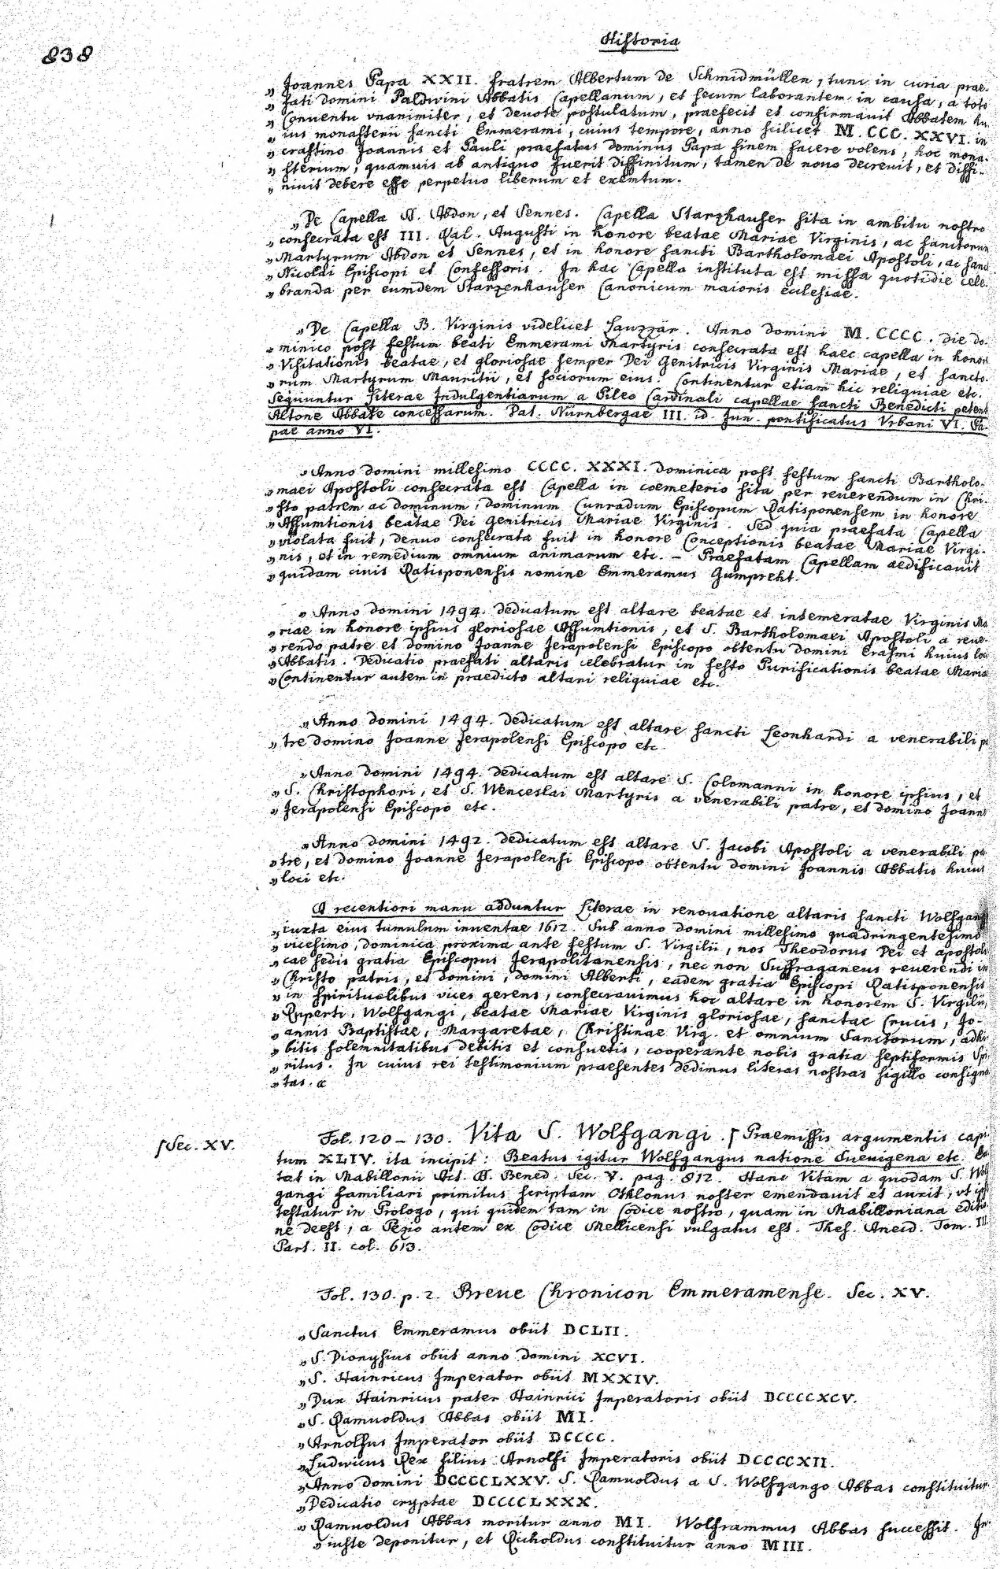 838
Historia
„ Joannes Papa XXII. fratrem Albertum de Schmidmüllen, tunc in curia prae-
„ fati domini Paldwini Abbatis Capellanum, et secum laborantem in causa, a toto
„ Conventu unanimiter, et devote postulatum, praefecit et confirmavit Abbatem hu
„ ius monasterii sancti Emmerami, cuius tempore, anno scilicet M. CCC. XXVI. in
„ crastino Joannis et Pauli praefatus dominus Papa finem facere volens, hoc mona-
„ sterium, quamuis ab antiquo fuerit diffinitum, tamen de nouo decreuit, et diffi-
„ niuit debere esse perpetuo liberum et exemtum.
„ De Capella S. Abdon, et Sennes. Capella Starzhauser sita in ambitu nostro
„ consecrata est III. Kal. Augusti in honore beatae Mariae Virginis, ac sanctorum
„ Martyrum Abdon et Sennes, et in honore sancti Bartholomaei Apostoli, ac sanc
„ Nicolai Episcopi et Confessoris. In hac Capella instituta est missa quotidie cele
„ branda per eumdem Starzenhauser Canonicum maioris ecclesiae.
„ De Capella B. Virginis videlicet Lauzzär. Anno domini M. CCCC. die do-
„ minico post festum beati Emmerami Martyris consecrata est haec capella in honor
„ Visitationis beatae, et gloriosae semper Dei Genitricis Virginis Mariae, et sancto-
„ rum Martyrum Mauritii, et sociorum eius. Continentur etiam hic reliquiae etc.
Sequuntur Literae Indulgentiarum a Pileo Cardinali capellae sancti Benedicti petent
Altone Abbate concessarum. Dat. Nürnbergae III. id. Jun. pontificatus Vrbani VI. Pa
pae anno VI.
„ Anno domini millesimo CCCC. XXXI. dominica post festum sancti Bartholo-
„ maei Apostoli consecrata est Capella in coemeterio sita per reuerendum in Chri-
„ sto patrem ac dominum, dominum Cunradum Episcopum Ratisponensem in honore
„ Assumtionis beatae Dei genitricis Mariae Virginis. Sed quia praefata Capella
„ violata fuit, denuo consecrata fuit in honore Conceptionis beatae Mariae Virgi-
„ nis, et in remedium omnium animarum etc. – Praefatam Capellam aedificauit
„ quidam ciuis Ratisponensis nomine Emmeramus Gumprekt.
„ Anno domini 1494. dedicatum est altare beatae et indemeratae Virginis Ma
„ riae in honore ipsius gloriosae Assumtionis, et S. Bartholomaei Apostoli a reue-
„ rendo patre et domino Joanne Jerapolensi Episcopo obtentu domini Erasmi huius loci
„ Abbatis. Dedicatio praefati altaris celebratur in festo Purificationis beatae Maria
„ Continentur autem in praedicto altari reliquiae etc.
„ Anno domini 1494. dedicatum est altare sancti Leonhardi a venerabili p
„ tre domino Joanne Jerapolensi Episcopo etc.
„ Anno domini 1494. dedicatum est altare S. Colomanni in honore ipsius, et
„ S. Christophori, et S. Wenceslai Martyris a venerabili patre, et domino Joann
„ Jerapolensi Episcopo etc.
„ Anno domini 1492. dedicatum est altare S. Jacobi Apostoli a venerabili pa
„ tre, et domino Joanne Jerapolensi Episcopo obtentu domini Joannis Abbatis huius
„ loci etc.
A recentiori manu adduntur Literae in renouatione altaris sancti Wolfgangi
„ iuxta eius tumulum inuentae 1612. Sub anno domini millesimo quadringentesimo
„ vicesimo, dominica proxima ante festum S. Virgilii, nos Theodorus Dei et apostoli
„ cae sedis gratia Episcopus Jerapolitanensis, nec non Suffraganeus reuerendi in
„ Christo patris, et domini, domini Alberti, eadem gratia Episcopi Ratisponensis
„ in spiritualibus vices gerens, consecrauimus hoc altare in honorem S. Virgilii,
„ Ruperti, Wolfgangi, beatae Mariae Virginis gloriosae, sanctae Crucis, Jo-
„ annis Baptistae, Margaretae, Christinae Virg. et omnium Sanctorum, adhi
„ bitis solemnitatibus debitis et consuetis, cooperante nobis gratia septiformis Spi
„ ritus. In cuius rei testimonium praesentes dedimus literas nostras sigillo consigna
„ tas.
ſ Sec. XV.
Fol. 120 – 130. Vita S. Wolfgangi. ſ Praemissis argumentis capi
tum XLIV. ita incipit: Beatus igitur Wolfgangus natione Sueuigena etc.
tat in Mabillonii Act. SS. Bened. Sec. V. pag. 812. Hanc Vitam a quodam S. Wol
gangi familiari primitus scriptam Othlonus noster emendauit et auxit, vt ipse
testatur in Prologo, qui quidem tam in Codice nostro, quam in Mabilloniana editio
ne deest, a Pezio autem ex Codice Mellicensi vulgatus est. Thes. Anecd. Tom. III
Part. II. col. 613.
Fol. 130. p. 2. Breue Chronicon Emmeramense. Sec. XV.
„ Sanctus Emmeramus obiit DCLII.
„ S. Dionysius obiit anno domini XCVI.
„ S. Hainricus Imperator obiit MXXIV.
„ Dux Hainricus pater Hainrici Imperatoris obiit DCCCCXCV.
„ S. Ramuoldus Abbas obiit MI.
„ Arnolfus Imperator obiit DCCCC.
„ Ludwicus Rex filius Arnolfi Imperatoris obiit DCCCCXII.
„ Anno domini DCCCCLXXV. S. Ramuoldus a S. Wolfgango Abbas constituitur
„ Dedicatio cryptae DCCCCLXXX.
„ Ramuoldus Abbas moritur anno MI. Wolframmus Abbas successit. In-
„ iuste deponitur, et Richoldus constituitur anno MIII.